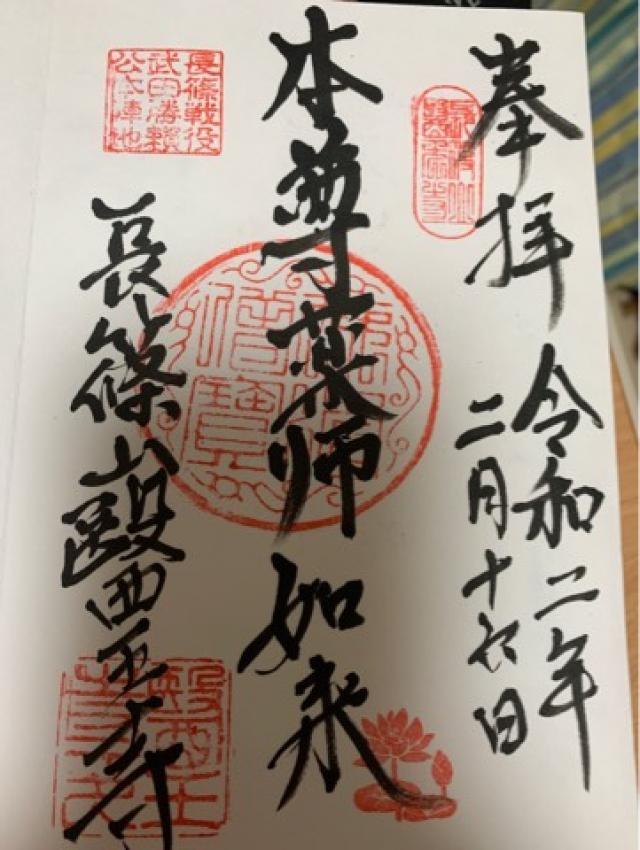 奉拝
令和二年
二月十日
本尊薬師如来
佛法
僧寶
長篠戦役
武田勝頼
公本陣地
長篠山醫王寺